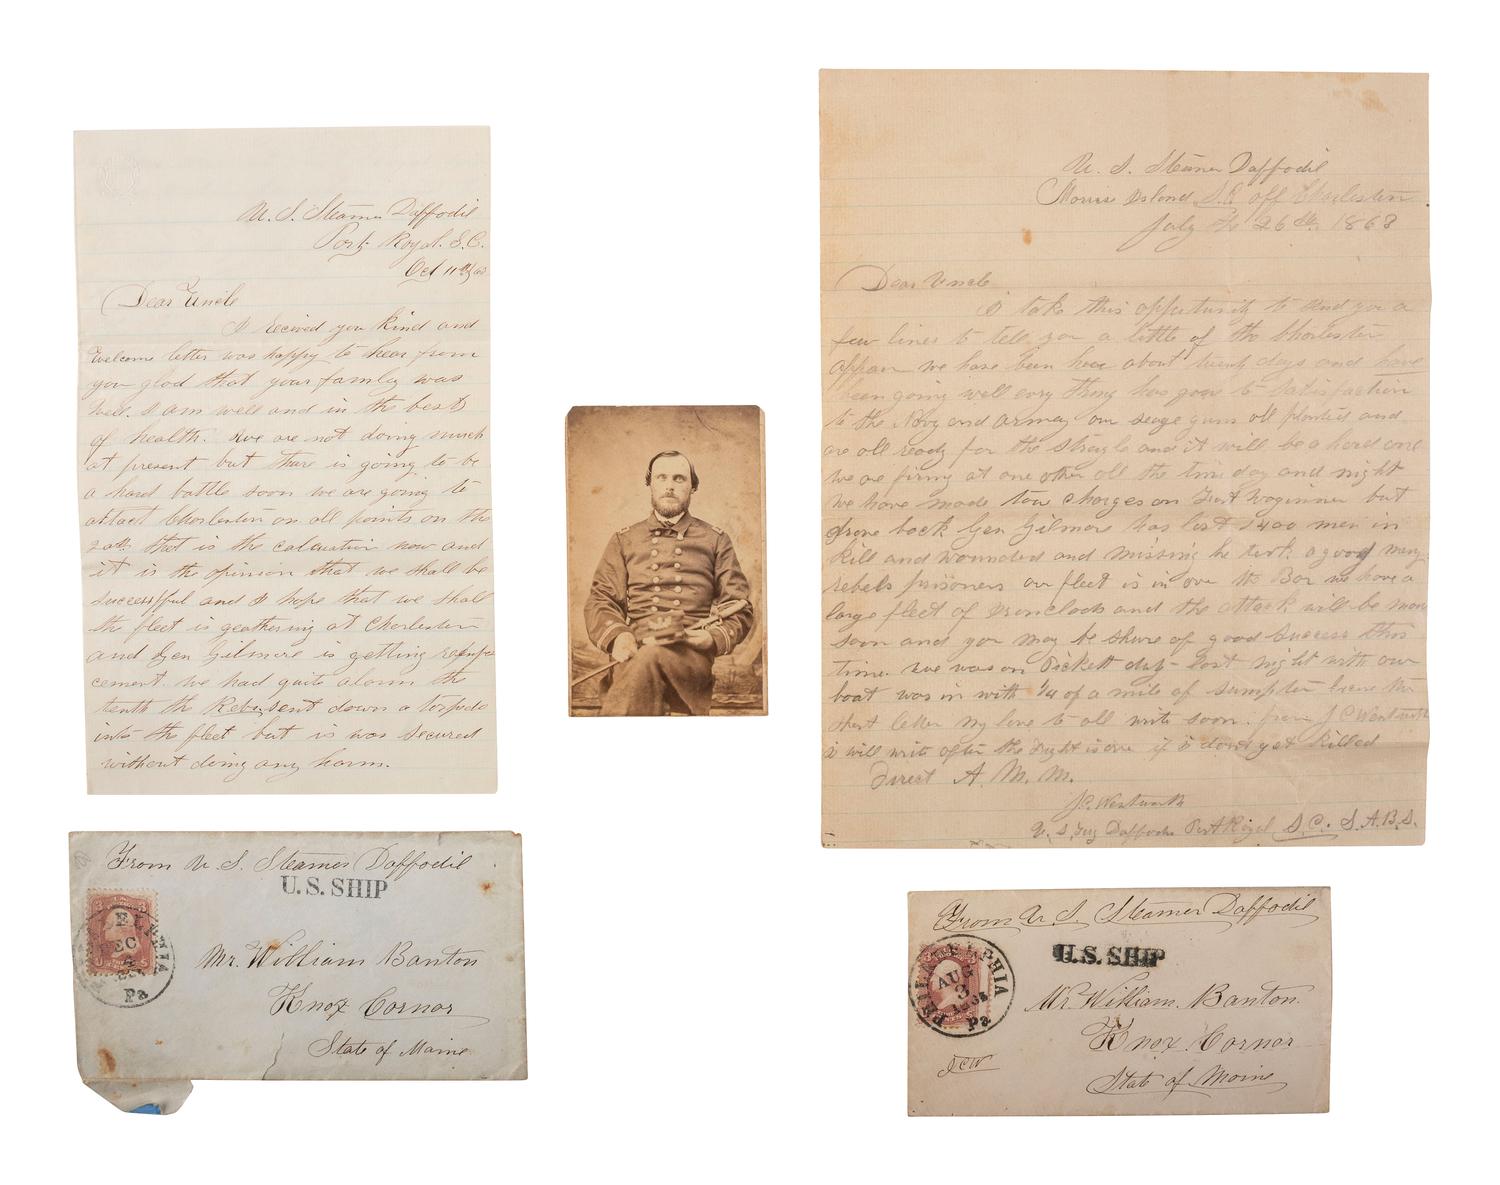 U. S. Steamer Daffodil
Port Royal. S. C.
Oct 11th/63
Dear Uncle
I recived you kind and
Welcome letter was happy to hear from
you glad that your family was
Well. I am well and in the best
of health. We are not doing much
at present but thare is going to be
a hard battle soon we are going to
attact Charleston on all points on the
20th that is the calcuation now and
it is the opinion that we shall be
successfful and I hope that we shall
the fleet is geathering at Charleston
and Gen Gilmore is getting
cement. we had quite alarm the
tenth the Rebs. sent down a torpedo
into the fleet but is was secured
without doing any harm.
From U S. Steamer Daffodil
U.S. SHIP
DEC
4
Pa
Mr. William Banton
Knox Cornor
State of Maine
U. S. Steamer Daffodil
Morris Island S.C. off Charleston
July 26th. 1863
Dear Uncle
I take this oppertunity to send you a
few lines to tell you a little of the Charleston
affair we have been heer about twenty days and have
been going well evry thing has gone to satisfaction
to the Navy and army our seage guns all planted and
are all ready for the strugle and it will be a hard one
we are firing at one other all the time day and night
we have made tow charges on Fort Waginner but
drove back Gen Gilmore has lost 2400 men in
kill and wounded and missing he took a good many
rebels prisoners our fleet is in over the Bar we have a
large fleet of Ironclads and the attack will be mon
soon and you may be shure of good success this
time. we was on Pickett duty last night with our
boat was in with 1/4 of a mile of Sumpter
short letter My love to all write soon. from J C Wentworth
I will write after the fight is over if I dont get killed
Direct A. M. M.
J.C. Wentworth
U. S. Tug Daffodil Port Royal S.C. S.A.B.S.
From U S. Steamer Daffodil
U.S. SHIP
PHILADELPHIA
AUG
3
1863
Pa
Mr. William. Banton.
Knox. Cornor
State of Maine
JCW